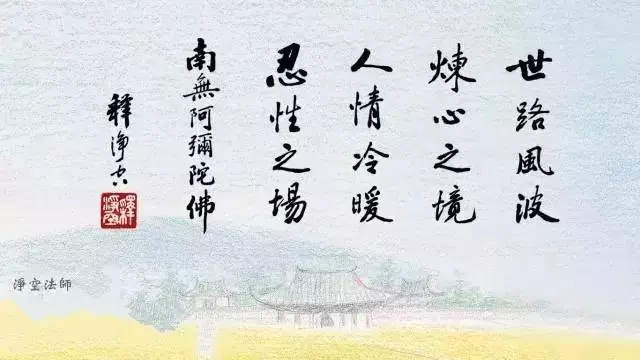 世路風波
煉心之境
人情冷暖
忍性之場
南無阿彌陀佛
釋淨空
淨空法師